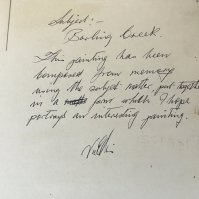 Subject:-
Barling Creek.
This painting has been
composed from memory
using the subject matter put together
in a form which I hope
portrays an interesting painting.